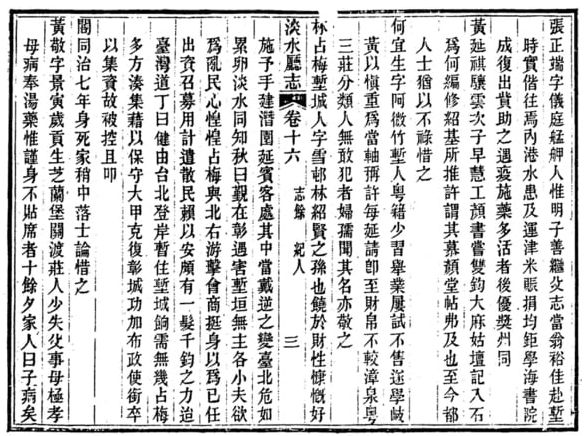 張正端字儀庭艋舺人惟明子善繼父志當翁裕佳赴塹
時實偕往焉內港水患及運津米賑捐均鉅學海書院
成復出貲助之遇疫施藥多活者後優獎州同
黃延祺驤雲次子早慧工顏書嘗雙鈎大麻姑壇記入石
為何編修紹基所推許謂其慕顏堂帖弗及也至今都
人士猶以不祿惜之
何宜生字阿微竹塹人粵籍少習舉業屢試不售迯學岐
黃以慎重為當軸稱許每延請即至財帛不較漳泉粵
三莊分類人無敢犯者婦孺聞其名亦敬之
林占梅塹城人字雪邨林紹賢之孫也饒於財性慷慨好
淡水廳志 卷十六 志餘 紀人 三
施予手建潛園延賓客處其中當戴逆之變臺北危如
累卵淡水同知秋曰覲在彰遇害塹垣無主各小夫欲
為亂民心惶惶占梅與北右游擊會商挺身以為已任
出資召募用計遣散民賴以安頗有一髮千鈞之力迨
臺灣道丁曰健由台北登岸暫住塹城餉需無幾占梅
多方湊集藉以保守大甲克復彰城功加布政使銜卒
以集資故被控且叩
閽同治七年身死家稍中落士論惜之
黃敬字景寅歲貢生芝蘭堡關渡莊人少失父事母極孝
母病奉湯藥惟謹身不貼席者十餘夕家人曰子病矣